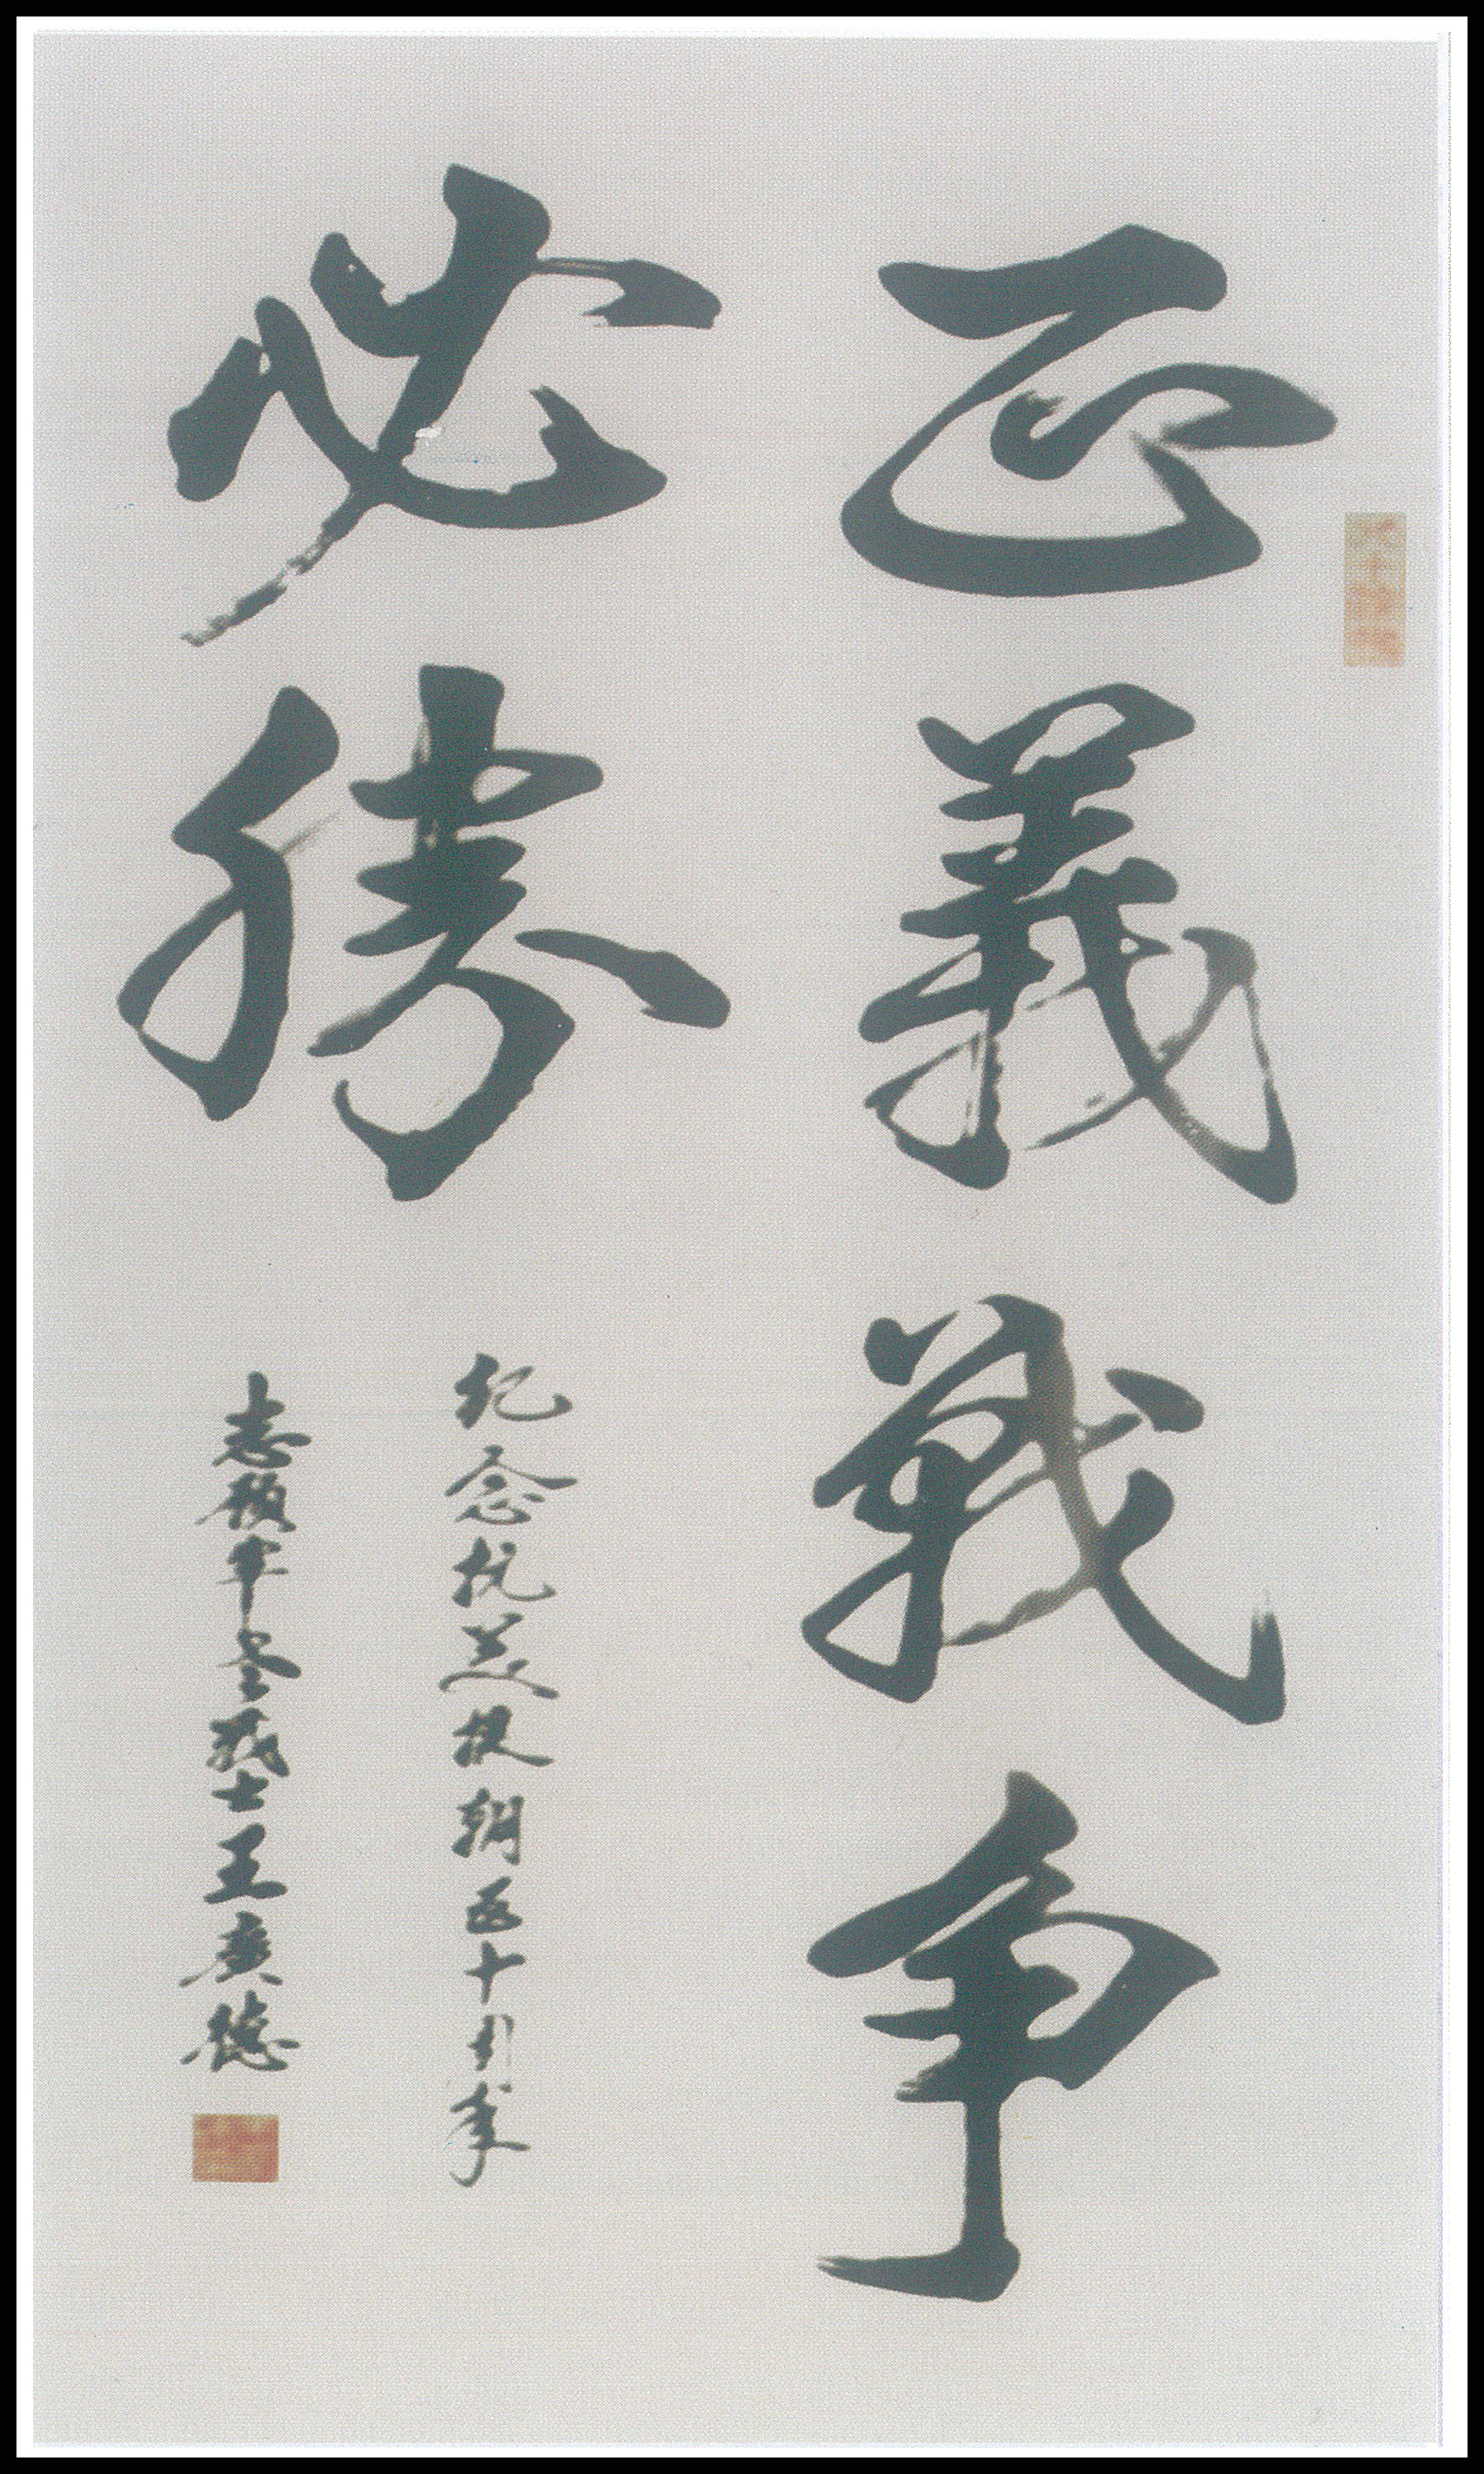 正義戰爭
必勝
纪念抗美援朝五十周年
志願军老战士王廣德